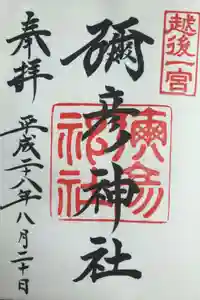 越後一宮
彌彦神社
奉拝
平成二十八年八月二十日